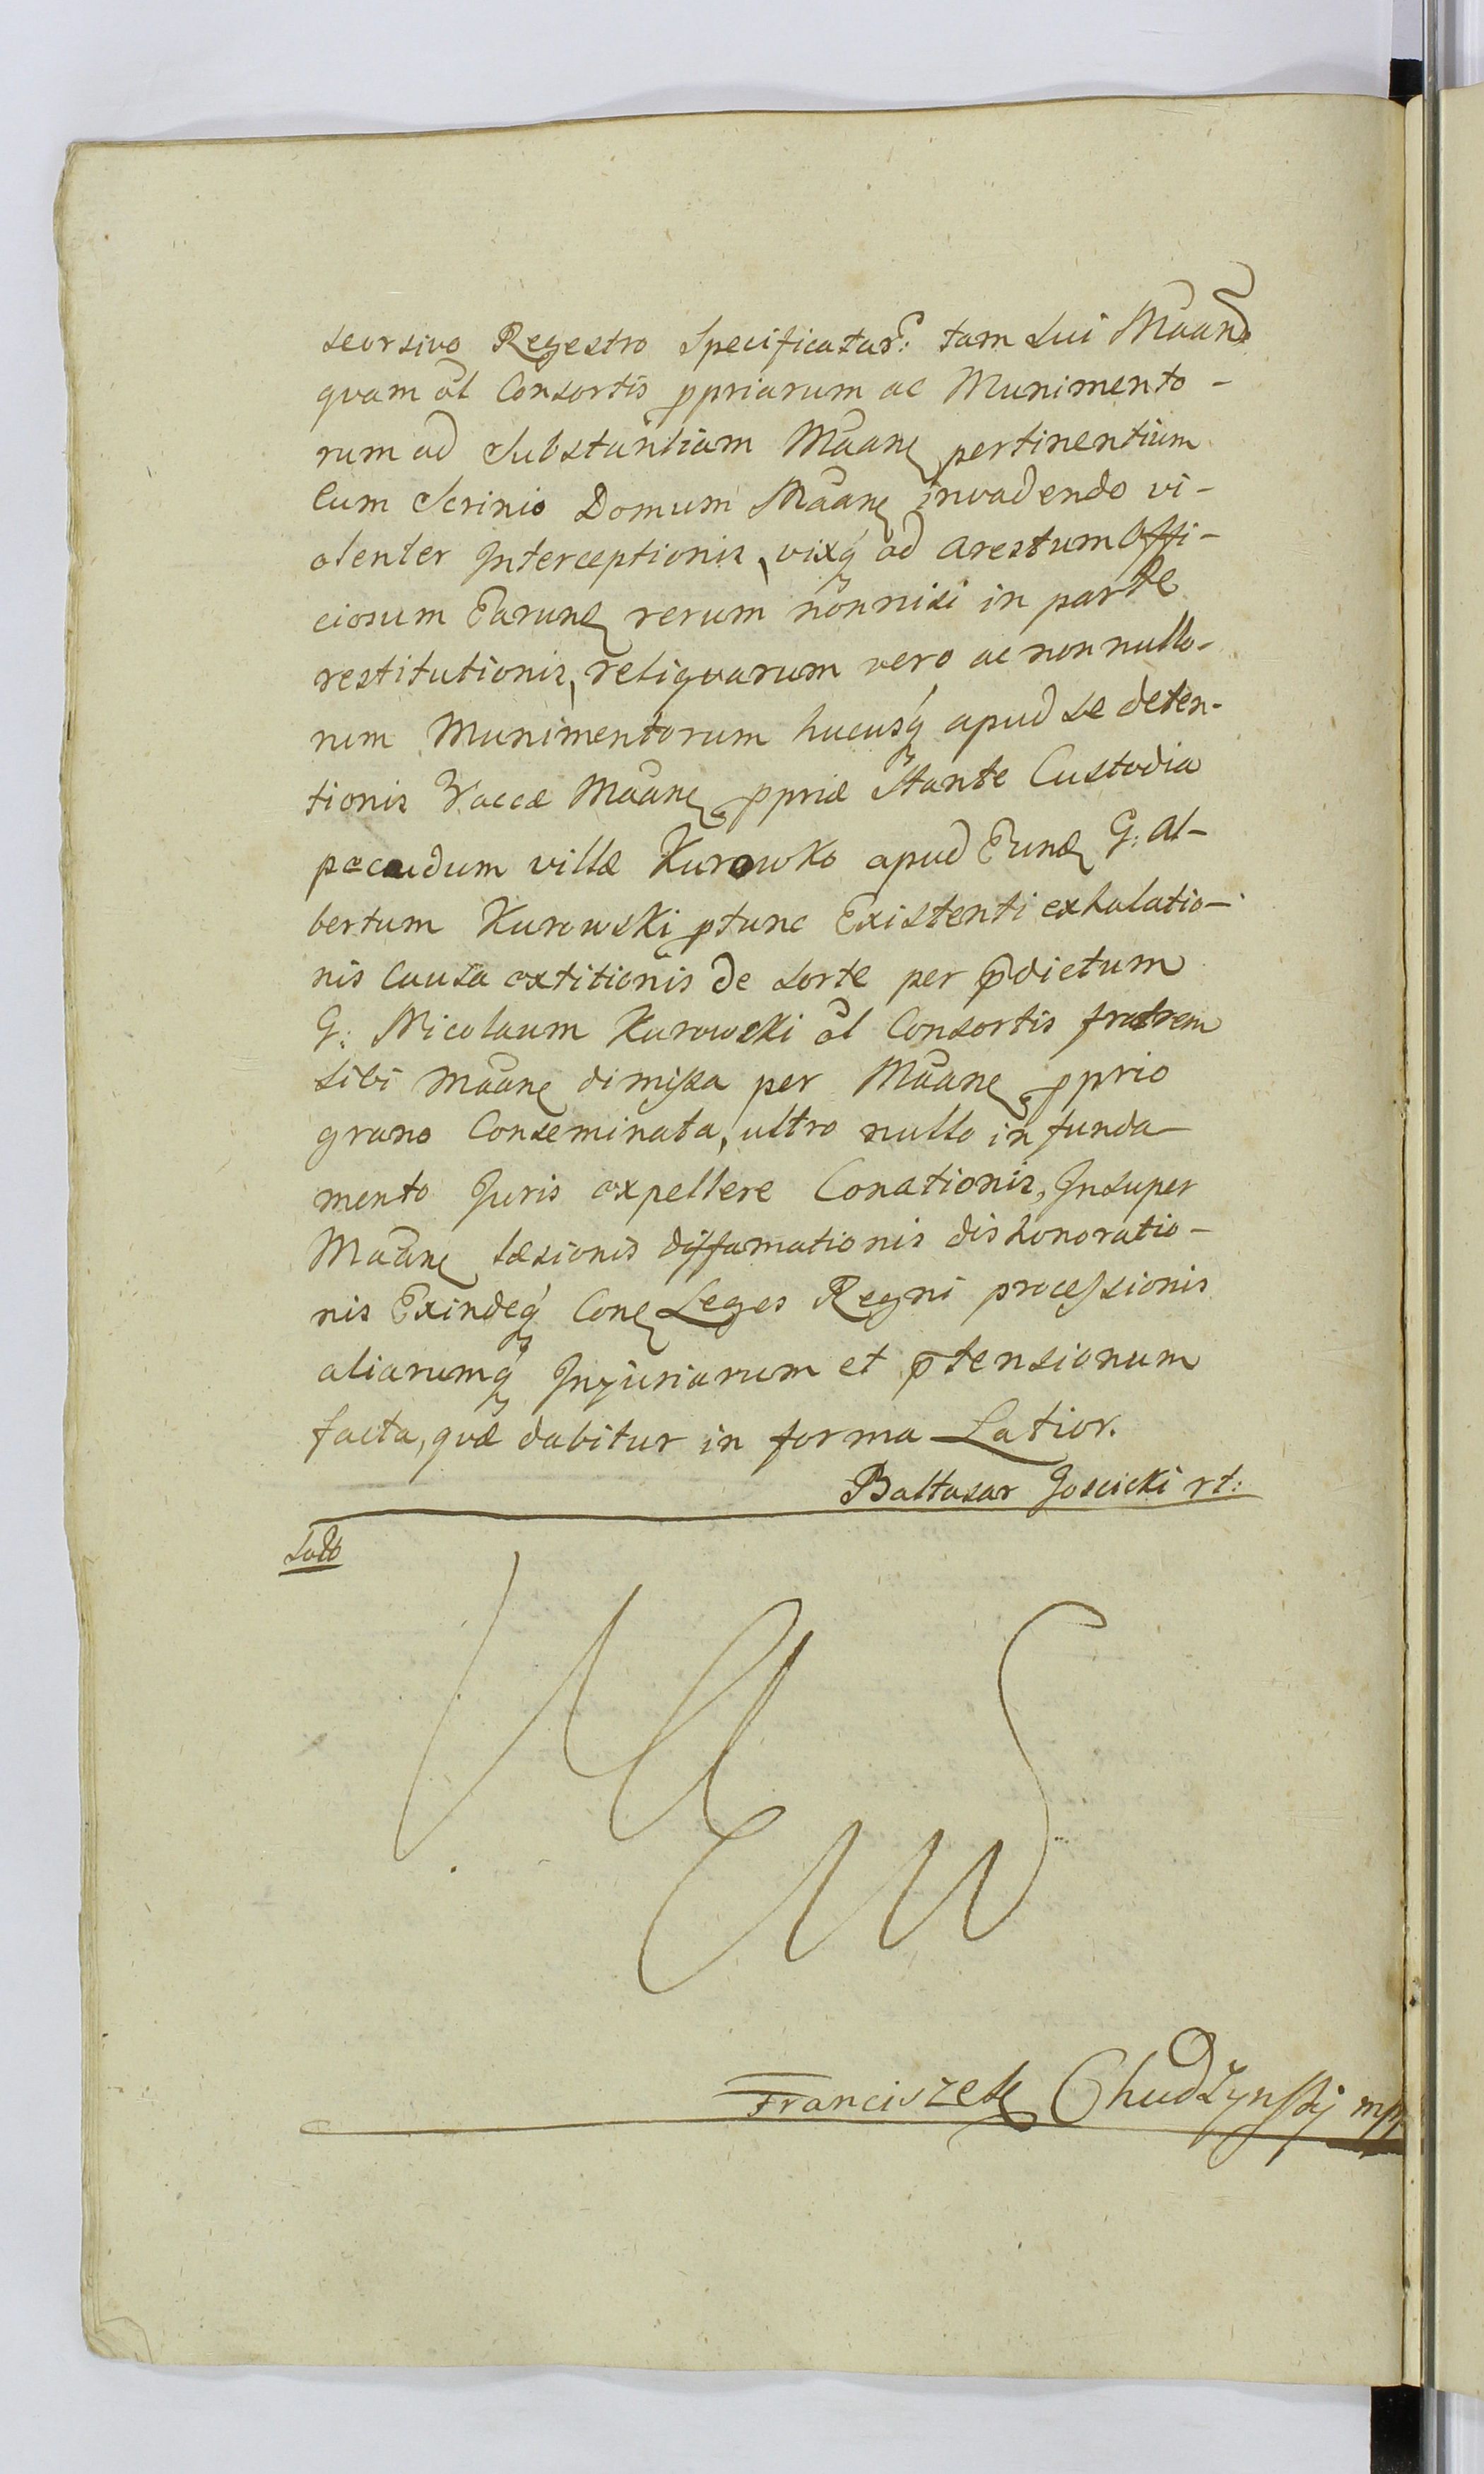 seorsivo Regestro Specificatar: tam sui Maand
quam ol Consortis ppriarum ac Munimento-
rum ad Substantiam Maane pertinentium
Cum Scrinio Domum Maane invadendo vi-
olenter Interceptionis, vixq ad arestum Offi-
ciosum Earund rerum nonnisi in parte
restitutionis, reliquarum vero ac nonnullo-
rum Munimentorum hucusq apud se deten-
tionis Vaccæ Maane ppriæ Stante Custodia
pecudum villæ Kurowko apud Eund G: Al-
bertum Kurowski ptunc Existenti exhalatio-
nis Causa extitionis de sorte per pdictum
G: Nicolaum Kurowski ol Consortis fratrem
sibi Maane dimissa per Maane pprio
grano Conseminata, ultro nullo in funda-
mento Juris expellere Conationis, Insuper
Maane læsionis diffamationis dishonoratio-
nis Exindeq Cone Leges Regni processionis
aliarumq Injuriarum et ptensionum
facta, quæ dabitur in forma Latior.
Baltasar Goscicki rt:
Franciszek Chudzynski mp